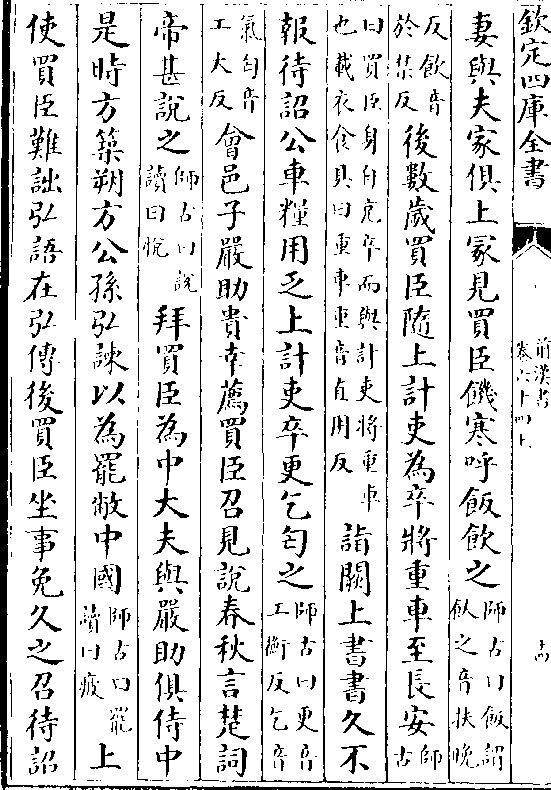 欽定四庫全書
前漢書
卷六十四上
十四
妻與夫家俱上冢見買臣饑寒呼飯飲之師古曰飯謂飤之音扶晚
反飲音於禁反後數歲買臣隨上計吏為卒將重車至長安師古
曰買臣身自充卒而與計吏將重車也載衣食具曰重車重音直用反詣闕上書書久不
報待詔公車糧用乏上計吏卒更乞匄之師古曰更音工衡反乞音
氣匄音工大反會邑子嚴助貴幸薦買臣召見說春秋言楚詞
帝甚說之師古曰說讀曰悅拜買臣為中大夫與嚴助俱侍中
是時方築朔方公孫弘諫以為罷敝中國師古曰罷讀曰疲上
使買臣難詘弘語在弘傳後買臣坐事免久之召待詔